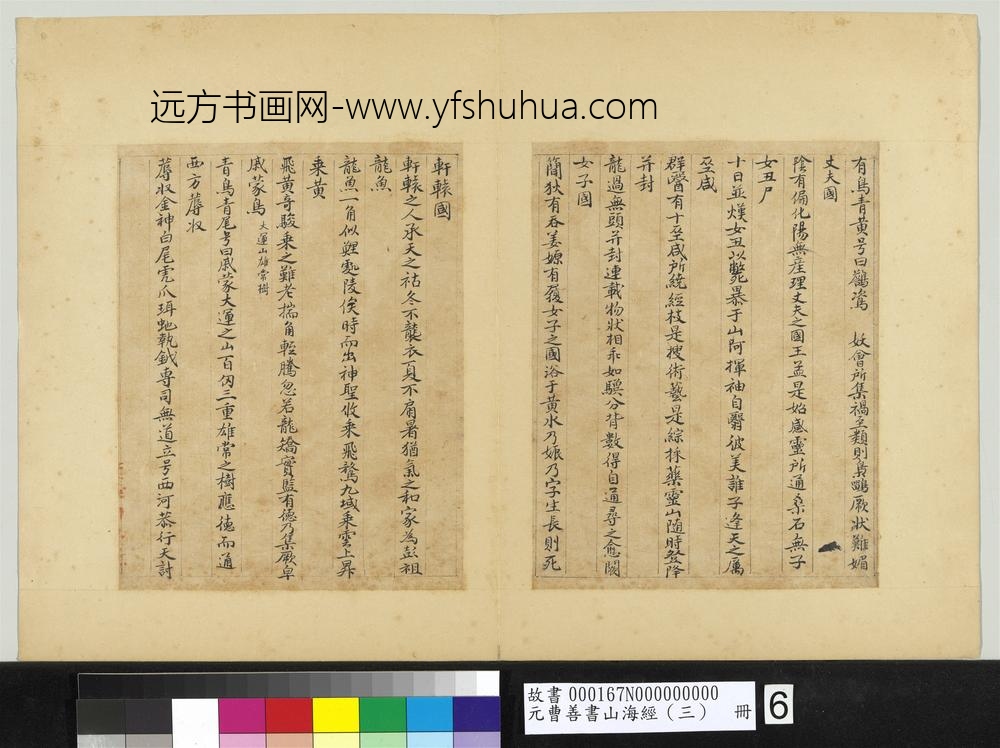 远方书画网-www.yfshuhua.com
有鳥青黄号曰鶠鴍 妖會所集禍至類則梟鶹厥狀難媚
丈夫國
陰有偏化陽無産理丈夫之國王孟是始感靈所通桑石無子
女丑尸
十日並熯女丑以斃暴于山阿揮袖自翳彼美誰子逢天之厲
巫咸
群醫有十巫咸所統經枝是搜術藝是綜採藥靈山随時登降
并封
龍過無頭并封連載物狀相乖如驥分背數得自通尋之愈閡
女子國
簡狄有吞姜嫄有履女子之國浴于黄水乃娠乃字生長則死
軒轅國
軒轅之人承天之祜冬不襲衣夏不扇暑猶氣之和家為彭祖
龍魚
龍魚一角似鯉䖏陵俟時而出神聖攸乘飛騖九域乘雲上昇
乗黄
飛黄奇駿乗之難老揣角輕騰忽若龍矯實監有徳乃集厥皁
戚蒙鳥 大運山雄常樹
青鳥青尾号曰戚蒙大運之山百仭三重雄常之樹應徳而通
西方蓐収
蓐収金神白尾虎爪珥虵執鉞専司無道立号西河恭行天討
故書 000167N000000000
元曹善書山海經（三） 冊
6